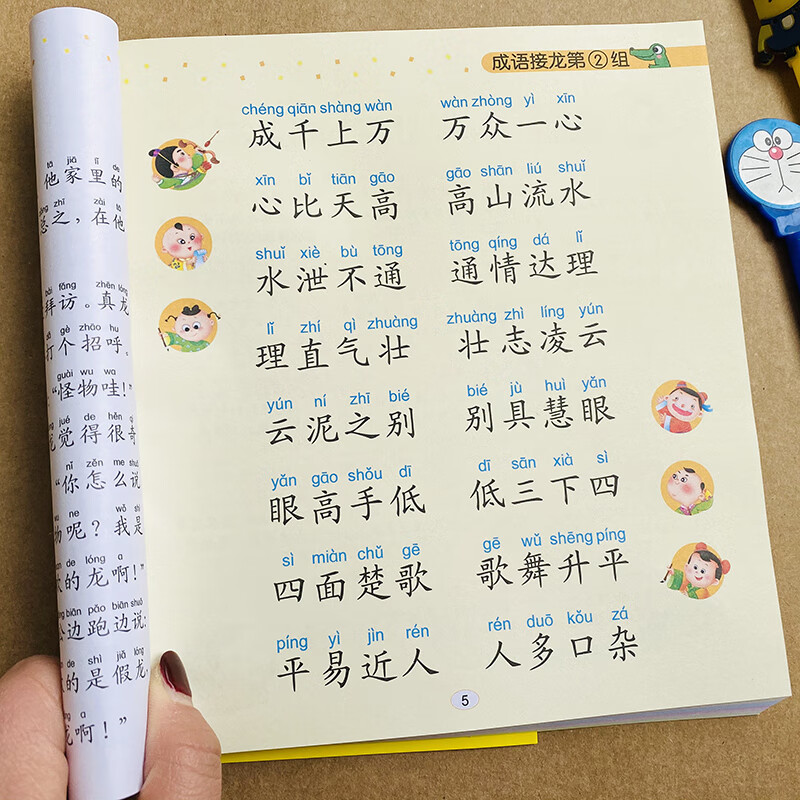 tā jiā lǐ de
他家里的
zhī zài tā
总之，在他
bài fǎng zhēn lóng
拜访。真龙
gè zhāo hu
打个招呼。
guài wu wa
“怪物哇！”
jué de hěn qí
觉得很奇
nǐ zěn me shuō
“你怎么说
wu ne wǒ shì
物呢？我是
de lóng a
的龙啊！”
biān pǎo biān shuō
边跑边说：
de shì jiǎ lóng
的是假龙，
a
龙啊！”
成语接龙第②组
chéng qiān shàng wàn wàn zhòng yì xīn
成千上万 万众一心
xīn bǐ tiān gāo gāo shān liú shuǐ
心比天高 高山流水
shuǐ xiè bù tōng tōng qíng dá lǐ
水泄不通 通情达理
lǐ zhí qì zhuàng zhuàng zhì líng yún
理直气壮 壮志凌云
yún ní zhī bié bié jù huì yǎn
云泥之别 别具慧眼
yǎn gāo shǒu dī dī sān xià sì
眼高手低 低三下四
sì miàn chǔ gē gē wǔ shēng píng
四面楚歌 歌舞升平
píng yì jìn rén rén duō kǒu zá
平易近人 人多口杂
5